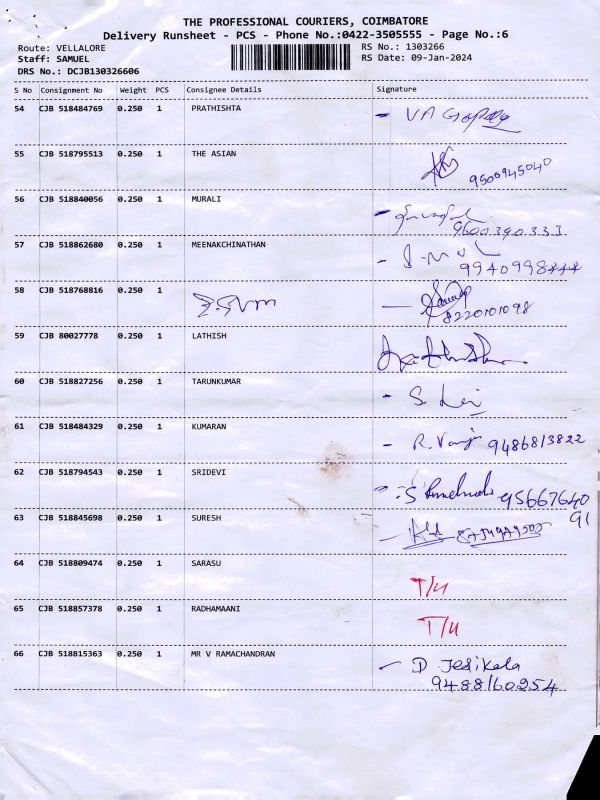 THE PROFESSIONAL COURIERS, COIMBATORE
Delivery Runsheet - PCS - Phone No.:0422-3505555 - Page No.:6
Route: VELLALORE RS No.: 1303266
Staff: SAMUEL RS Date: 09-Jan-2024
DRS No.: DCJB130326606
S No Consignment No Weight PCS Consignee Details Signature
54 CJB 518484769 0.250 1 PRATHISHTA
55 CJB 518795513 0.250 1 THE ASIAN
9500945040
56 CJB 518840056 0.250 1 MURALI
9600390333
57 CJB 518862680 0.250 1 MEENAKCHINATHAN
58 CJB 518768816 0.250 1
8220101098
59 CJB 80027778 0.250 1 LATHISH
60 CJB 518827256 0.250 1 TARUNKUMAR
61 CJB 518484329 0.250 1 KUMARAN
9486813822
62 CJB 518794543 0.250 1 SRIDEVI
95667640
91
63 CJB 518845698 0.250 1 SURESH
64 CJB 518809474 0.250 1 SARASU
65 CJB 518857378 0.250 1 RADHAMAANI
66 CJB 518815363 0.250 1 MR V RAMACHANDRAN
D Jesikala
9488160254